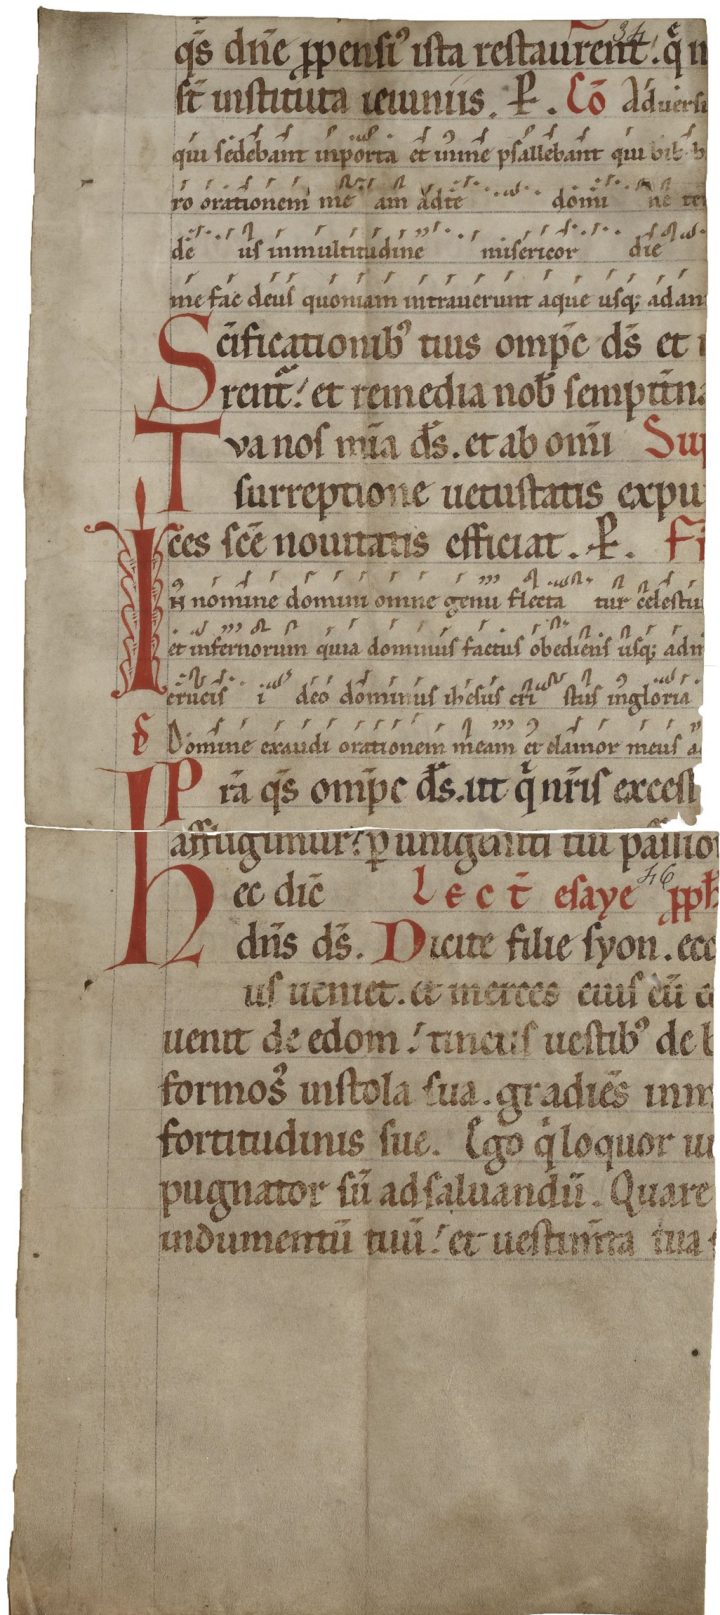 q̄s dn̄e ꝓpensi᷒ ista restaurent. q̄ n
st̄ instituta ieiuniis. P̄. Cō Aduersū
qui sedebant inporta et inme psallebant qui bib
ro orationem me am adte domi ne
de us inmultitudine misericor die
me fac deus quoniam intrauerunt aque usq; adan
Sc̄ificationib᷒ tuis omp̄c ds̄ et
rent̄! et remedia nob̄ sempit̄na
Tua nos mīa ds̄. et ab omī Sup
surreptione uetustatis expu
ces sc̄e nouitatis efficiat. P̄. F
IN nomine domini omne genu flecta tur celestiu
et infernorum quia dominus factus obediens usq; adm
crucis i deo dominus ihesus cri stus ingloria
Ps Domine exaudi orationem meam et clamor meus a
Pr̄a q̄s omp̄c ds̄. ut q̄ nr̄is excess
affligimur! ꝑ unigeniti tui passion
hec dic̄ Lect̄ esaye ꝓph
dn̄s ds̄. Dicite filie syon. ecc
us ueniet. et merces eius cū e
uenit de edom! tinctis uestib᷒ de b
formos᷒ instola sua. gradiēs inm
fortitudinis sue. Ego q̄ loquor iu
pugnator sū adsaluandū. Quare
indumentū tuū! et uestim̄ta tua